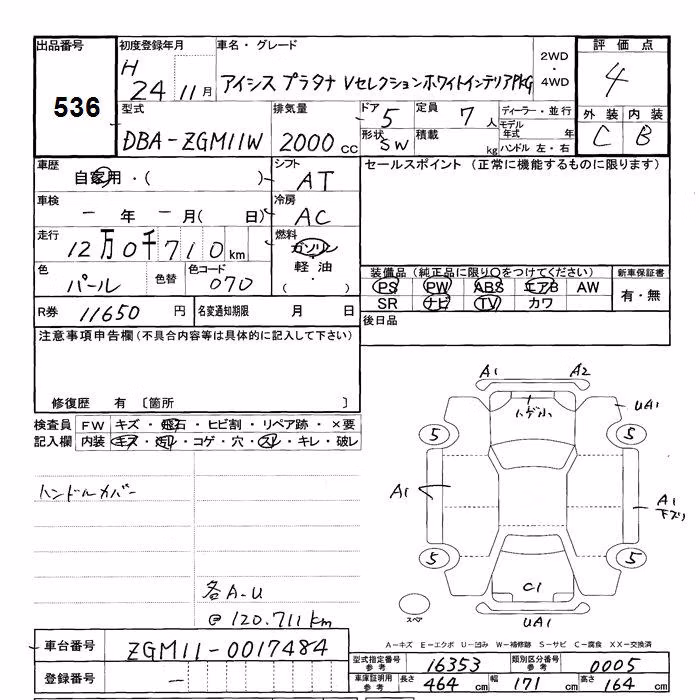 出品番号 536
初度登録年月 H 24 11月
車名・グレード アイシス プラタナ VセレクションホワイトインテリアPKG
2WD・4WD
評価点 4
外装 C 内装 B
型式 DBA-ZGM11W
排気量 2000 cc
ドア 5
形状 SW
定員 7人
積載 kg
ディーラー・並行
モデル年式 年
ハンドル 左・右
車歴 自家用・( )
シフト AT
セールスポイント (正常に機能するものに限ります)
車検 ー年 ー月( 日)
冷房 AC
走行 12万0千710km
燃料 ガソリン
軽油
( ・ )
色 パール
色替
色コード 070
装備品(純正品に限り○をつけてください)
PS PW ABS エアB AW
SR ナビ TV カワ
新車保証書
有・無
R券 11650円
名変通知期限 月 日
後日品
注意事項申告欄(不具合内容等は具体的に記入して下さい)
修復歴 有 〔箇所 〕
検査員 FW キズ・飛石・ヒビ割・リペア跡・×要
記入欄 内装 キズ・汚れ・コゲ・穴・スレ・キレ・破レ
ハンドルカバー
各A-U
@120.711km
A1 A2
ハゲ小
UA1
5 5
A1
A1
下ズリ
5 5
C1
スペア
UA1
A-キズ E-エクボ U-凹み W-補修跡 S-サビ C-腐食 XX-交換済
車台番号 ZGM11-0017484
登録番号 ー
型式指定番号 参考 16353
類別区分番号 参考 0005
車庫証明用 参考 長さ 464cm 幅 171cm 高さ 164cm